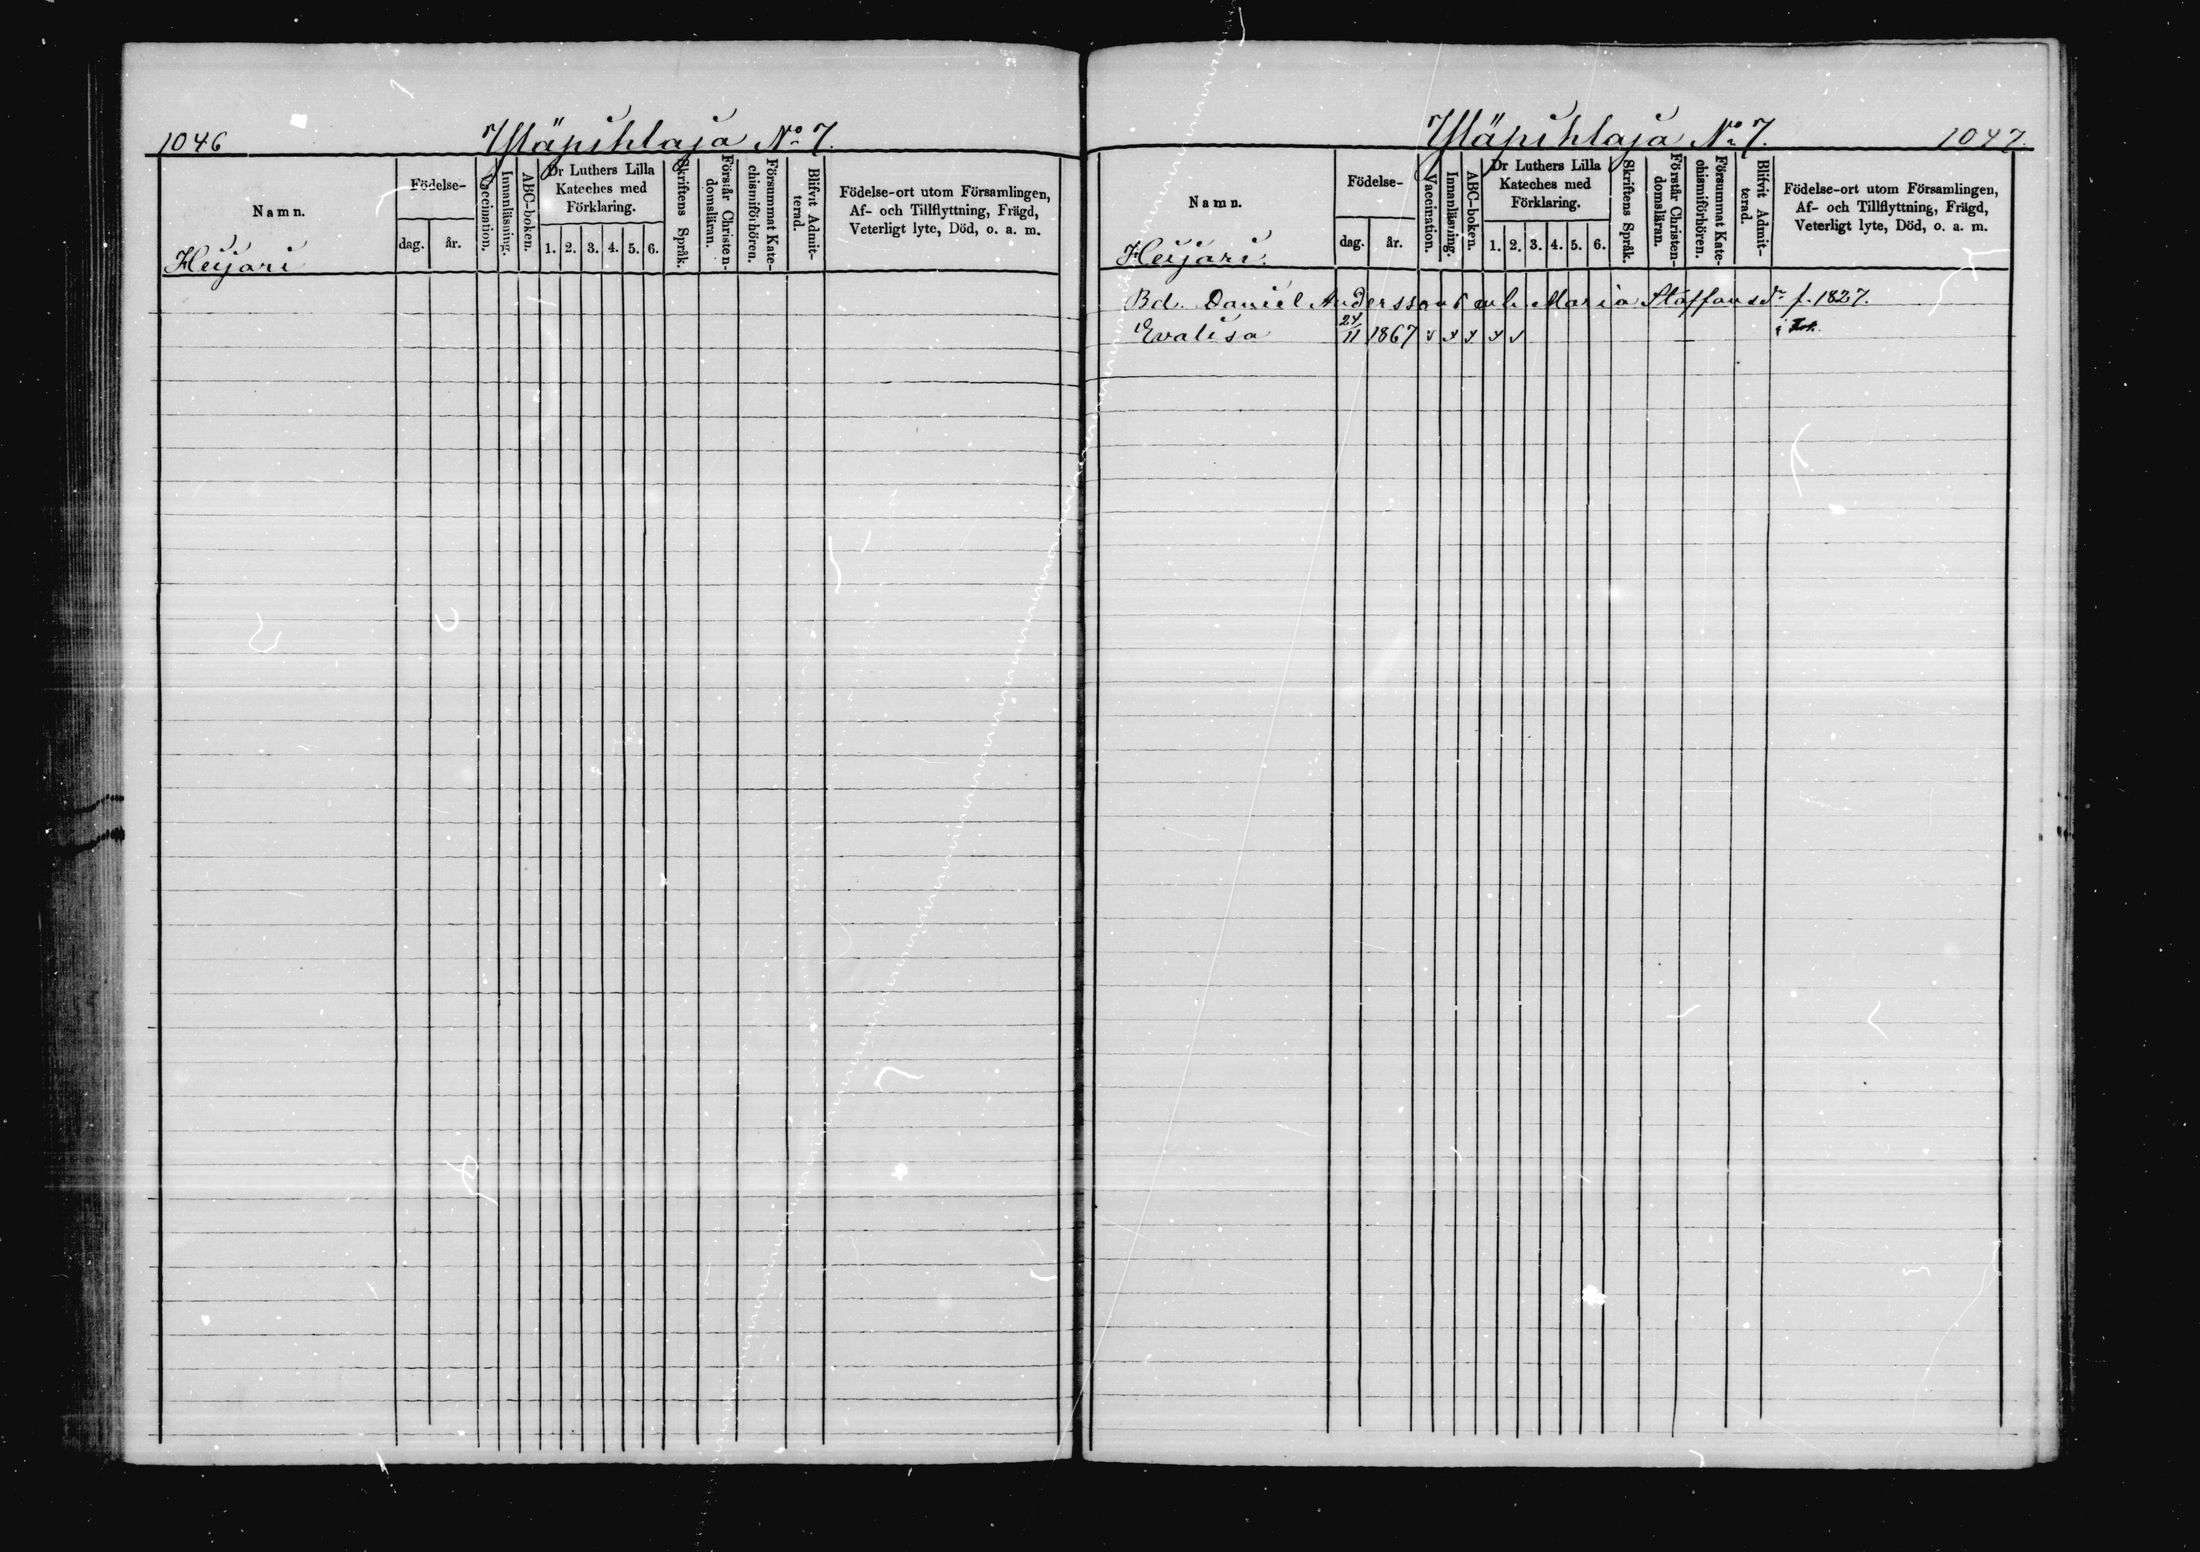 1046
Yläpihlaja No 7.
Namn.
Födelse-
dag.
år.
Vaccination.
Innanläsning.
ABC-boken.
Dr Luthers Lilla
Kateches med
Förklaring.
1. 2. 3. 4. 5. 6.
Skriftens Språk.
Förstår Christen-
domsläran.
Försummat Kate-
chismiförhören.
Blifvit Admit-
terad.
Födelse-ort utom Församlingen,
Af- och Tillflyttning, Frägd,
Veterligt lyte, Död, o. a. m.
Heijari
Yläpihlaja No 7.
1047.
Namn.
Födelse-
dag.
år.
Vaccination.
Innanläsning.
ABC-boken.
Dr Luthers Lilla
Kateches med
Förklaring.
1. 2. 3. 4. 5. 6.
Skriftens Språk.
Förstår Christen-
domsläran.
Försummat Kate-
chismiförhören.
Blifvit Admit-
terad.
Födelse-ort utom Församlingen,
Af- och Tillflyttning, Frägd,
Veterligt lyte, Död, o. a. m.
Heijari.
Bd. Daniel Anderssons enk. Maria Staffansdr f. 1827.
Evalisa 24/11 1867 i